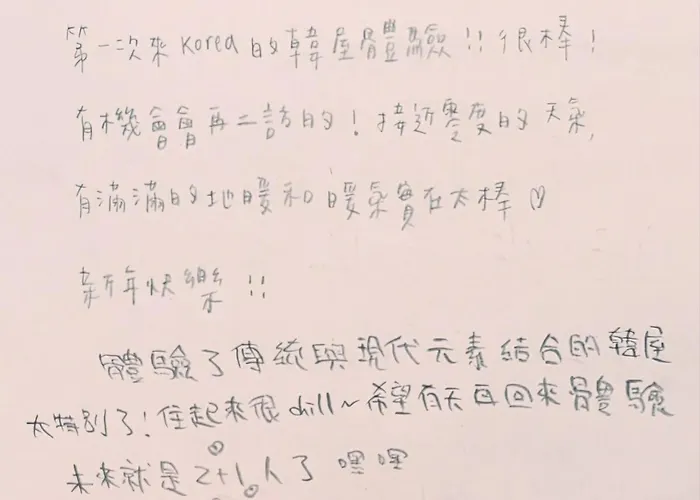 第一次來Korea的韓屋體驗!!很棒!
有機會會再二訪的!接近零度的天氣,
有滿滿的地暖和暖氣實在太棒♡
新年快樂!!
體驗了傳統與現代元素結合的韓屋
太特別了!住起來很chill~希望有天再回來體驗
未來就是2+1人了 嘿嘿